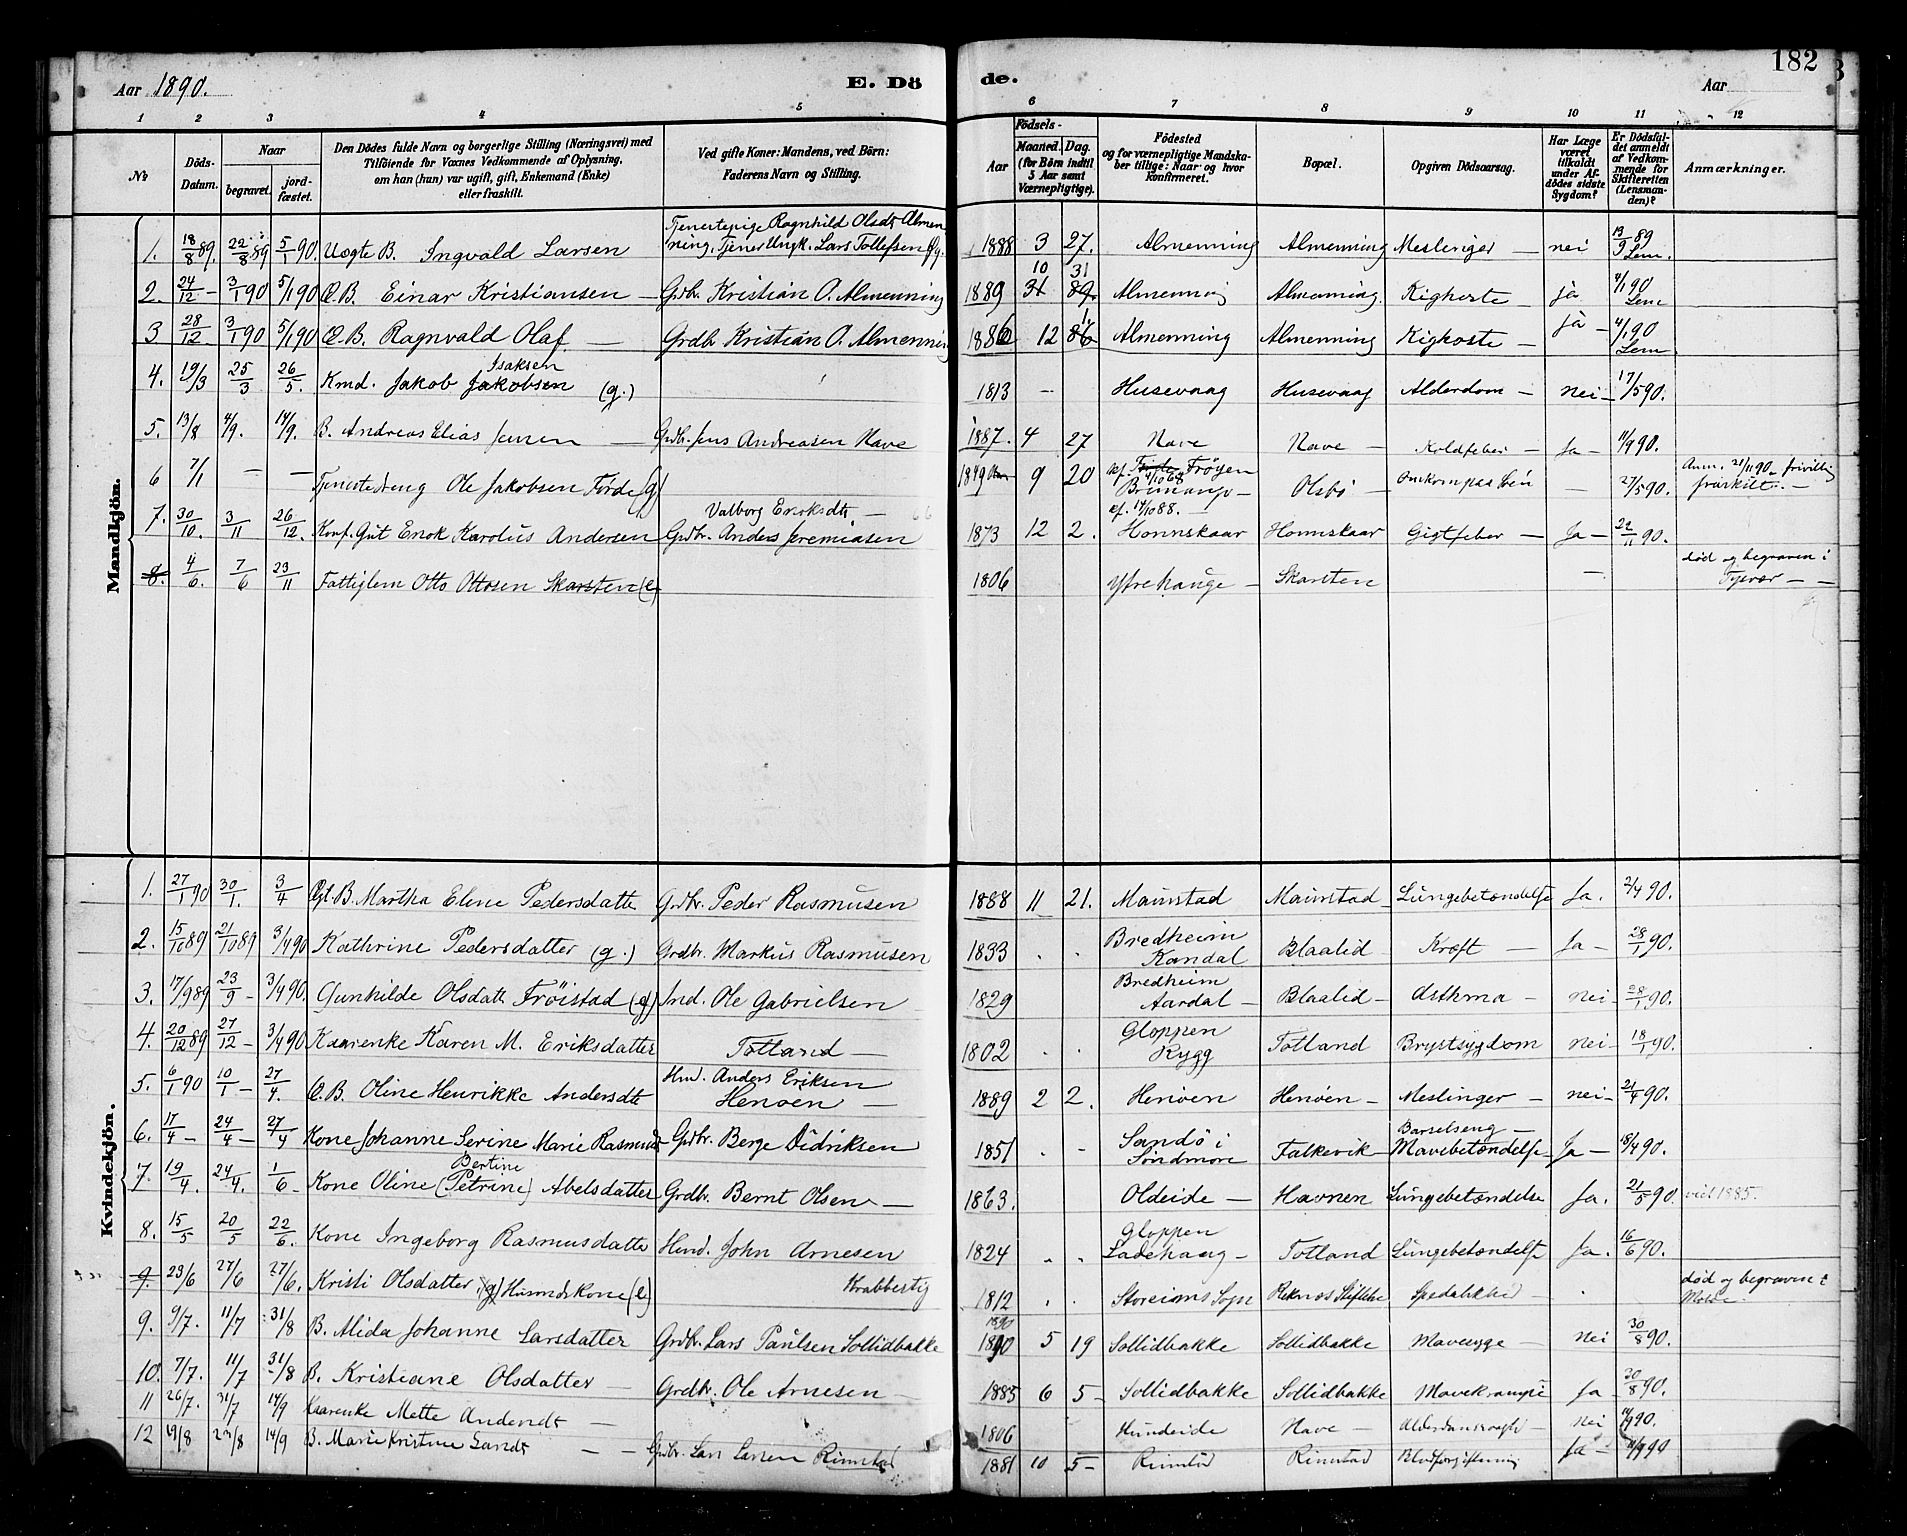 Aar 1890.
E. Dö
de.
Aar
182
1 2 3 4 5 6 7 8 9 10 11 12
No
Döds-Datum.
Naar
begravet.
jord-fæstet.
Den Dödes fulde Navn og borgerlige Stilling (Næringsvei) med
Tilföiende for Voxnes Vedkommende af Oplysning,
om han (hun) var ugift, gift, Enkemand (Enke)
eller fraskilt.
Ved gifte Koner: Mandens, ved Börn:
Faderens Navn og Stilling.
Födsels-
Aar
Maaned. Dag.
(for Börn indtil 5 Aar samt Værnepligtige).
Födested
og for værnepligtige Mandskaber tillige: Naar og hvor konfirmeret.
Bopæl.
Opgiven Dödsaarsag.
Har Læge været tilkaldt under Afdödes sidste Sygdom?
Er Dödsfaldet anmeldt af Vedkommende for Skifteretten (Lensmanden)?
Anmærkninger.
Mandkjön.
1. 18/8 89. 22/8 89 5/1 90. Uægte B. Ingvald Larsen Tjenestepige Ragnhild Olsdt Almenning. Tjener Ungk. Lars Tollefsen 1888 3 27. Almenning Almenning Meslinger – nei 13/9 89 Lem.
2. 24/12 – 3/1 90 5/1 90 Æ.B. Einar Kristiansen – Grdbr. Kristian O. Almenning 1889 10 31 Almenning Almenning. Kighoste – ja 4/1 90 Lem
3 28/12 3/1 90 5/1 90 Æ.B. Ragnvald Olaf – Grdbr Kristian O. Almenning 1886 12 1. Almenning Almenning Kighoste – ja – 4/1 90 Lem
4. 19/3 25/3 26/5. Kmd. Jakob Jakobsen Isaksen (g.) 1813 – Husevaag Husevaag Alderdom – nei – 17/5 90.
5. 13/8 4/9. 14/9. B. Andreas Elias Jensen – Grdbr. Jens Andreasen Nave 1887. 4 27 Nave Nave – Koldfeber – Ja – 11/9 90.
6 7/1 – – Tjenestedreng Ole Jakobsen Förde (g) 1849 9 20 Fröyen Bremanger – Olsbö – Omkom paa Söen – 27/5 90. Anm. 21/11 90 – frivillig fraskilt. –
7. 30/10. 3/11 26/12. Konf. Gut Enok Karolus Andersen Valborg Enoksdt. – Grdbr. Anders Jeremiasen 1873 12 2. kf. 17/10 88. – Honnskaar Honnskaar Gigtfeber – Ja – 22/11 90.
8. 4/6. 7/6 23/11 Fattiglem Otto Ottosen Skarsten (e) 1806 Ytrehauge – Skarsten – död og begraven i
Kvindekjön.
1. 27/1 90 30/1. 3/4 Ægt. B. Martha Elene Pedersdatte Grdbr. Peder Rasmusen 1888 11 21. Maurstad Maurstad Lungebetændelse Ja. 2/4 90.
2. 15/10 89 21/10 89 3/4 90 Kathrine Pedersdatter (g.) Grdbr. Markus Rasmusen 1833 . . Bredheim Kandal Blaalid Kræft – Ja – 28/1 90.
3. 17/9 89 23/9 – 3/4 90. Gunhilde Olsdatt Fröistad (g) Ind. Ole Gabrielsen 1829 Bredheim Aardal – Blaalid – Asthma – nei – 28/1 90.
4. 20/12 89 27/12 – 3/4 90 Kaarenke Karen M. Eriksdatter Totland – 1802 . . Gloppen Rygg Totland Brystsygdom nei – 18/1 90.
5. 6/1 90 10/1 – 27/4. Æ.B. Oline Henrikke Andersdtr Hmd. Anders Eriksen Henöen – 1889 2 2. Henöen Henöen – Meslinger – nei – 21/4 90.
6. 17/4 – 24/4 – 27/4 Kone Johanne Serine Marie Rasmusd – Grdbr. Berge Didriksen 1851 . – Sandö i Söndmöre Falkevik – Barselseng – Mavebetændelse Ja – 18/4 90.
7. 19/4. 24/4. 1/6 Kone Oline (Petrine) Bertine Abelsdatter Grdbr. Bernt Olsen – 1863. Oldeide – Havnen Lungebetændelse Ja. 21/5 90. viet 1885.
8. 15/5 20/5 22/6. Kone Ingeborg Rasmusdatte Hmd. John Arnesen 1824 . . Gloppen Ladehaug – Totland Lungebetændelse Ja. 16/6 90.
9. 23/6 27/6 27/6. Kristi Olsdatter, (g) Husmdskone (e) Krabbestig 1812 . . Storeims Sogn Reknæs Stiftelse Spedalskhed – . död og begraven i Molde.
9. 9/7. 11/7 31/8 B. Alida Johanne Larsdatter Grdbr. Lars Paulsen Sollidbakke 1890 5 19 Sollidbakke Sollidbakke Mavesyge – nei 30/8 90.
10. 7/7. 11/7 31/8 B. Kristiane Olsdatter – Grdbr. Ole Arnesen – 1885 6 5 – Sollidbakke Sollidbakke Mavekrampe Ja – 30/8 90.
11 26/7. 31/7 14/9 Kaarenke Mette Andersdt – 1806 Hundeide Nave – nei 11/9 90.
12 19/8 23/8 14/9 B. Marie Kristine Larsdt – – Grdbr. Lars Larsen Rimstad 1881 10 5 – Rimstad Rimstad Blodforgiftning Ja – 11/9 90